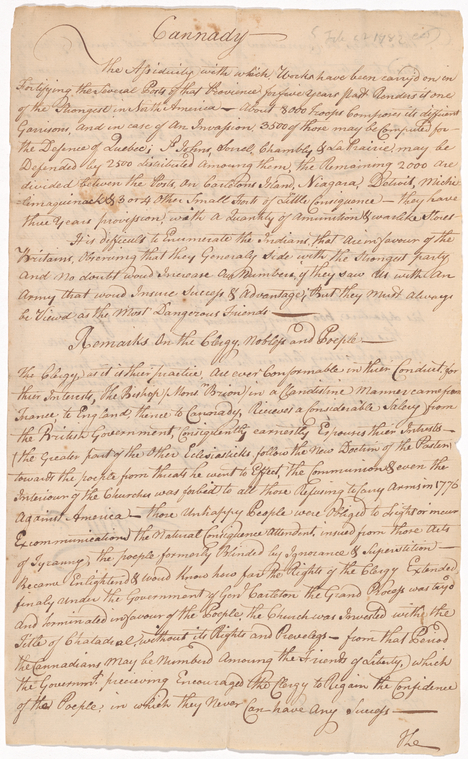 Cannady
The Assiduity with which Works have been carryd on in
Fortifying the Several Posts of that Province for five Years past Renders it one
of the Strongest in North America — About 8000 Troops Composes its different
Garrisons, and in case of An Invasion 3500 of those may be Computed for
the Defence of Quebec; St Johns, Sorel, Chambly & La Prairie, may be
Defended by 2500 distributed Amoung them, the Remaining 2000 are
divided between the Posts, on Carletons Island, Niagara, Detroit, Michie
limaquinack & 3 or 4 Other Small Forts of Little Consequence — they have
three Years provission, with a Quantity of Amunition & warlike Stores
It is difficult to Enumerate the Indians, that are in favour of the
Britains, observing that they Generaly Side with the Strongest party
And no doubt would Increase in Numbers, if they saw Us with An
Army that would Insure Success & Advantage, But they Must Always
be Viewd as the Most Dangerous Friends —
Remarks On the Clergy, Nobless and People —
The Clergy, as it is their practice, are ever Conformable in their Conduct, for
their Interests, the Bishop (Monsr Brion) in a Clandestine Manner came from
France to England, thence to Cannady, Receives a Considerable Salery from
the British Government, Consiquently earnestly Espouses their Intrests —
(the Greater part of the Other Eclesiasticks follow the New Doctrin of the
towards the people from threats he went to Effect, the Communion & even the
Interiour of the Churches was forbid to all those Refusing to Carry Arms in 1776
Against America — those Unhappy People were Obliged to Light or incur
Excommunication, the Natural Consiquence Attendent, issued from those Acts
of Tyranny, the poeple formerly Blinded by Ignorance & Superstition —
Became Enlightend & woud Know how far the Rights of the Clergy Extended
finaly Under the Government of Genl Carleton the Grand Process was tryd
And terminated in favour of the People, the Church was Invested with the
Title of without its Rights and Preveleges — from that Period
the Cannadians May be Numberd Amoung the Friends of Liberty, which
the Governmt. precieving Encouraged the Clergy to Regain the Confidence
of the Poeple; in which they Never Can have Any Success —
The